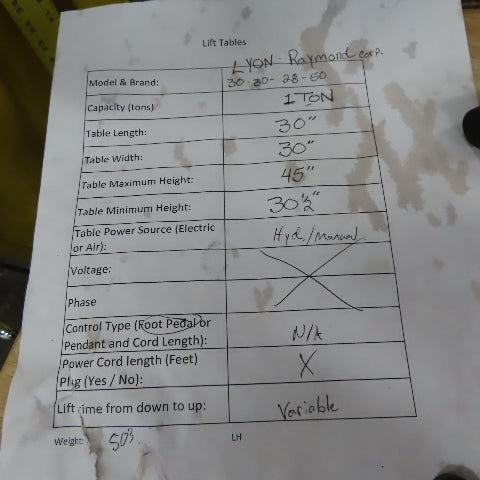 Lift Tables
LYON - Raymond corp.
Model & Brand: 30-30-28-50
Capacity (tons) 1 TON
Table Length: 30"
Table Width: 30"
Table Maximum Height: 45"
Table Minimum Height: 30½"
Table Power Source (Electric
or Air): Hyd./Manual
Voltage:
Phase
Control Type (Foot Pedal or
Pendant and Cord Length): N/A
Power Cord length (Feet)
Plug (Yes / No): X
Lift time from down to up: Variable
Weight: LH